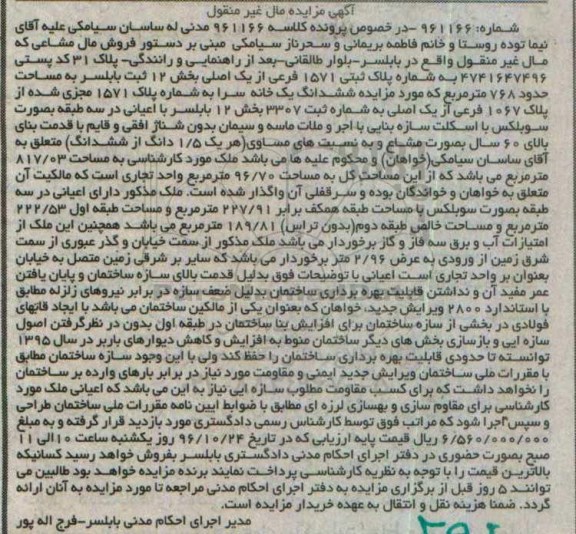 آگهی مزایده مال غیر منقول
شماره: ۹۶۱۱۶۶ -در خصوص پرونده کلاسه ۹۶۱۱۶۶ مدنی له ساسان سیامکی علیه آقای
نیما توده روستا و خانم فاطمه بریمانی و سحرناز سیامکی مبنی بر دستور فروش مال مشاعی که
مال غیر منقول واقع در بابلسر-بلوار طالقانی-بعد از راهنمایی و رانندگی- پلاک ۳۱ کد پستی
۴۷۴۱۶۴۷۴۹۶ به شماره پلاک ثبتی ۱۵۷۱ فرعی از یک اصلی بخش ۱۲ ثبت بابلسر به مساحت
حدود ۷۶۸ مترمربع که مورد مزایده ششدانگ یک خانه سرا به شماره پلاک ۱۵۷۱ مجزی شده از
پلاک ۱۰۶۷ فرعی از یک اصلی به شماره ثبت ۳۳۰۷ بخش ۱۲ بابلسر با اعیانی در سه طبقه بصورت
سوبلکس با اسکلت سازه بنایی با اجر و ملات ماسه و سیمان بدون شناژ افقی و قایم با قدمت بنای
بالای ۶۰ سال بصورت مشاع و به نسبت های مساوی(هر یک ۱/۵ دانگ از ششدانگ) متعلق به
آقای ساسان سیامکی(خواهان) و محکوم علیه ها می باشد ملک مورد کارشناسی به مساحت ۸۱۷/۰۳
مترمربع می باشد که از این مساحت کل به مساحت ۹۶/۷۰ مترمربع واحد تجاری است که مالکیت آن
متعلق به خواهان و خواندگان بوده و سرقفلی آن واگذار شده است. ملک مذکور دارای اعیانی در سه
طبقه بصورت سوبلکس با مساحت طبقه همکف برابر ۲۲۷/۹۱ مترمربع و مساحت طبقه اول ۲۲۲/۵۳
مترمربع و مساحت خالص طبقه دوم(بدون تراس) ۱۸۹/۸۱ مترمربع می باشد همچنین این ملک از
امتیازات آب و برق سه فاز و گاز برخوردار می باشد ملک مذکور از سمت خیابان و گذر عبوری از سمت
شرق زمین از ورودی به عرض ۲/۹۶ متر برخوردار می باشد که سایر بر شرقی زمین متصل به خیابان
بعنوان بر واحد تجاری است اعیانی با توضیحات فوق بدلیل قدمت بالای سازه ساختمان و پایان یافتن
عمر مفید آن و نداشتن قابلیت بهره برداری ساختمان بدلیل ضعف سازه در برابر نیروهای زلزله مطابق
با استاندارد ۲۸۰۰ ویرایش جدید، خواهان که بعنوان یکی از مالکین ساختمان می باشد با ایجاد قابهای
فولادی در بخشی از سازه ساختمان برای افزایش بنا ساختمان در طبقه اول بدون در نظرگرفتن اصول
سازه ایی و بازسازی بخش های دیگر ساختمان منوط به افزایش و کاهش دیوارهای باربر در سال ۱۳۹۵
توانسته تا حدودی قابلیت بهره برداری ساختمان را حفظ کند ولی با این وجود سازه ساختمان مطابق
با مقررات ملی ساختمان ویرایش جدید ایمنی و مقاومت مورد نیاز در برابر بارهای وارده بر ساختمان
را نخواهد داشت که برای کسب مقاومت مطلوب سازه ایی نیاز به این می باشد که اعیانی ملک مورد
کارشناسی برای مقاوم سازی و بهسازی لرزه ای مطابق با ضوابط ایین نامه مقررات ملی ساختمان طراحی
و سپس اجرا شود که مراتب فوق توسط کارشناس رسمی دادگستری مورد بازدید قرار گرفته و به مبلغ
۶/۵۶۰/۰۰۰/۰۰۰ ریال قیمت پایه ارزیابی که در تاریخ ۹۶/۱۰/۲۴ روز یکشنبه ساعت ۱۰ الی ۱۱
صبح بصورت حضوری در دفتر اجرای احکام مدنی دادگستری بابلسر بفروش خواهد رسید کسانیکه
بالاترین قیمت را با توجه به نظریه کارشناسی پرداخت نمایند برنده مزایده خواهند بود طالبین می
توانند ۵ روز قبل از برگزاری مزایده به دفتر اجرای احکام مدنی مراجعه تا مورد مزایده به آنان ارائه
گردد. ضمنا هزینه نقل و انتقال به عهده خریدار مزایده است.
مدیر اجرای احکام مدنی بابلسر-فرج اله پور